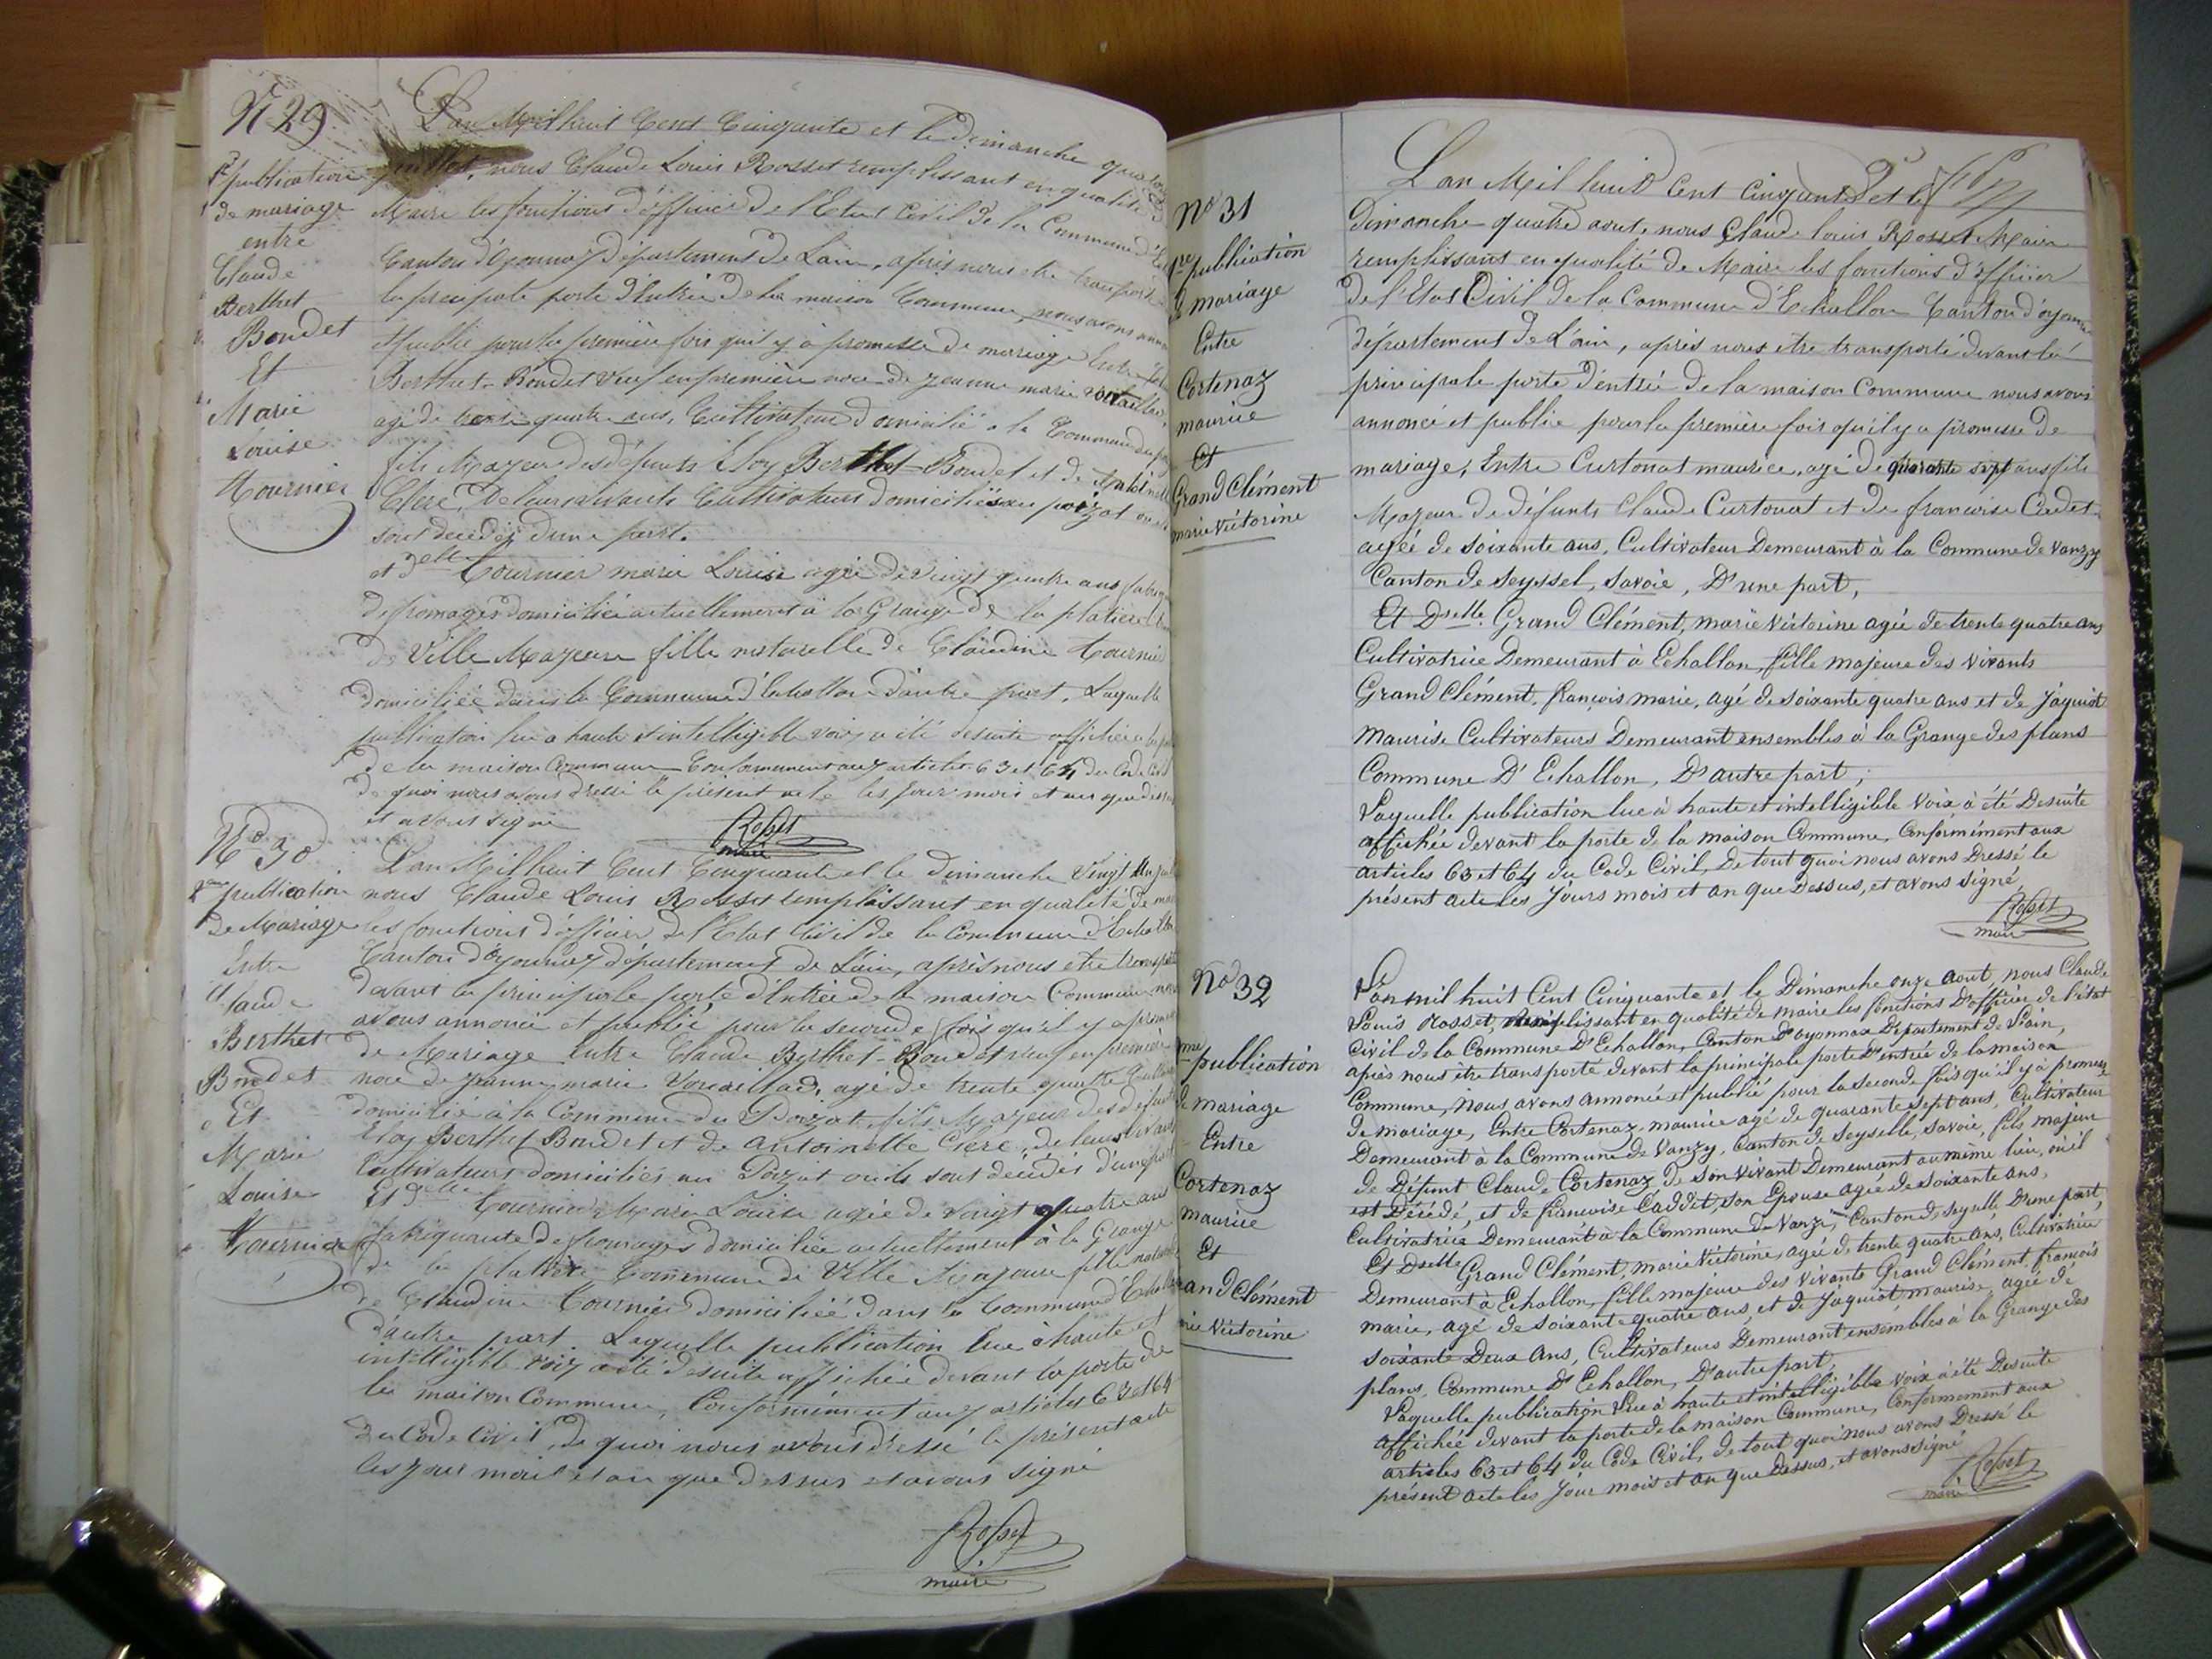 N° 29
1re publication
de mariage
entre
Claude
Berthet
Bondet
Et
Marie
Louise
Tournier
L'an Mil huit Cent Cinquante et le dimanche
juillet, nous Claude Louis Rosset remplissant en qualité de
Maire les fonctions d'officier de l'Etat Civil de la Commune
Canton d'Oyonnax département de L'ain, après nous etre transporté
la principale porte d'Entrée de la maison Commune, nous avons
et publié pour la première fois qu'il y a promesse de mariage Entre
Berthet-Bondet veuf en première noce de jeanne marie
agé de trente quatre ans, Cultivateur domicilié à la Commune du
fils Majeur des défunts Eloy Berthet-Bondet et de
Clerc, De leurs vivants Cultivateurs domiciliés au poizat ou
sont decedés d'une part.
et Delle Tournier marie Louise agée de vingt quatre ans
de fromages domiciliée actuellement à la Grange de la platière
de Ville Majeure fille naturelle de Claudine Tournier
domiciliée dans la Commune d'Echallon d'autre part, Laquelle
publication lue a haute et intelligible voix a été desuite affichée
de la maison Commune Conformement aux articles 63 et 64 du Code Civil
de quoi nous avons dressé le présent acte les jour mois et an que dessus
et avons signé
Rosset
maire
N° 30
2me publication
de Mariage
Entre
Claude
Berthet
Bondet
Et
Marie
Louise
Tournier
L'an Mil huit Cent Cinquante et le dimanche vingt un
nous Claude Louis Rosset remplissant en qualité de
les fonctions d'officier de l'Etat Civil de la Commune d'Echallon
Canton d'Oyonnax département de L'ain, après nous etre
devant la principale porte d'Entrée de la maison Commune
avons annoncé et publié pour la seconde fois qu'il y a
de Mariage Entre Claude Berthet-Bondet veuf en première
noce de jeanne marie agé de trente quatre
domicilié à la Commune du Poizat, fils Majeur des defunts
Eloy Berthet Bondet et de Antoinette Clerc, de leurs vivants
Cultivateurs domiciliés au Poizat ou ils sont decedés d'une part
Et Delle Tournier Marie Louise agée de vingt quatre ans
fabriquante de fromages domiciliée actuellement à la Grange
de la platière Commune de Ville Majeure fille
de Claudine Tournier domiciliée dans la Commune
d'autre part Laquelle publication lue à haute et
intelligible voix a été desuite affichée devant la porte de
la maison Commune, Conformément aux articles 63 et 64
du Code Civil, de quoi nous avons dressé le présent acte
les jour mois et an que dessus et avons signé
Rosset
maire
N° 31
1re publication
de mariage
Entre
Cortenaz
maurice
Et
Grand Clément
marie Victorine
L'an Mil huit Cent Cinquante et le
Dimanche quatre août nous Claude louis Rosset Maire
remplissant en qualité de Maire les fonctions d'officier
de l'Etat Civil de la Commune d'Echallon Canton d'oyonnax
département de L'ain, après nous etre transporté devant la
principale porte d'entrée de la maison Commune nous avons
annoncé et publié pour la première fois qu'il y a promesse de
mariage, Entre Curtonat maurice, agé de quarante sept ans fils
Majeur de défunts Claude Curtonat et de francoise Cadet
agée de soixante ans, Cultivateur Demeurant à la Commune de Vanzy
Canton de Seyssel, Savoie, D'une part,
Et Dselle Grand Clément, marie Victorine agée de trente quatre ans
Cultivatrice Demeurant à Echallon, fille majeure des vivants
Grand Clément, françois marie, agé de soixante quatre ans et de Jaquiot
Maurise Cultivateurs Demeurant ensembles à la Grange des plans
Commune D'Echallon, D'autre part;
Laquelle publication lue à haute et intelligible voix à été Desuite
affichée devant la porte de la maison Commune, Conformément aux
articles 63 et 64 du Code Civil, De tout quoi nous avons Dressé le
présent acte les Jours mois et an que Dessus, et avons signé
Rosset
maire
N° 32
me publication
de mariage
Entre
Cortenaz
maurice
Et
and Clément
rie Victorine
L'an mil huit Cent Cinquante et le Dimanche onze août, nous Claude
Louis Rosset, remplissant en qualité de maire les fonctions D'officier de l'état
civil de la Commune D'Echallon, Canton D'oyonnax Département de L'ain,
après nous être transporté devant la principale porte D'entrée de la maison
Commune, nous avons annoncé et publié pour la seconde fois qu'il y à promesse
de mariage, Entre Cortenaz maurice agé de quarante sept ans, Cultivateur
Demeurant à la Commune de Vanzy, Canton de Seyselle, Savoie, fils majeur
de Défunt Claude Cortenaz de son vivant Demeurant au même lieu, où il
est Décédé, et de francoise Caddet, son Epouse agée de soixante ans,
Cultivatrice Demeurant à la Commune de Vanzi, Canton de Seyselle D'une part,
Et Dselle Grand Clément, marie Victorine, agée de trente quatre ans, Cultivatrice
Demeurant à Echallon, fille majeure des vivants Grand Clément, francois
marie, agé de soixante quatre ans, et de Jaquiot maurise, agée de
soixante Deux ans, Cultivateurs Demeurant ensembles à la Grange des
plans, Commune D'Echallon, D'autre part,
Laquelle publication lue à haute et intelligible voix à été Desuite
affichée devant la porte de la maison Commune, Conformement aux
articles 63 et 64 du Code Civil, de tout quoi nous avons Dressé le
présent acte les Jour mois et an que Dessus, et avons signé
Rosset
maire